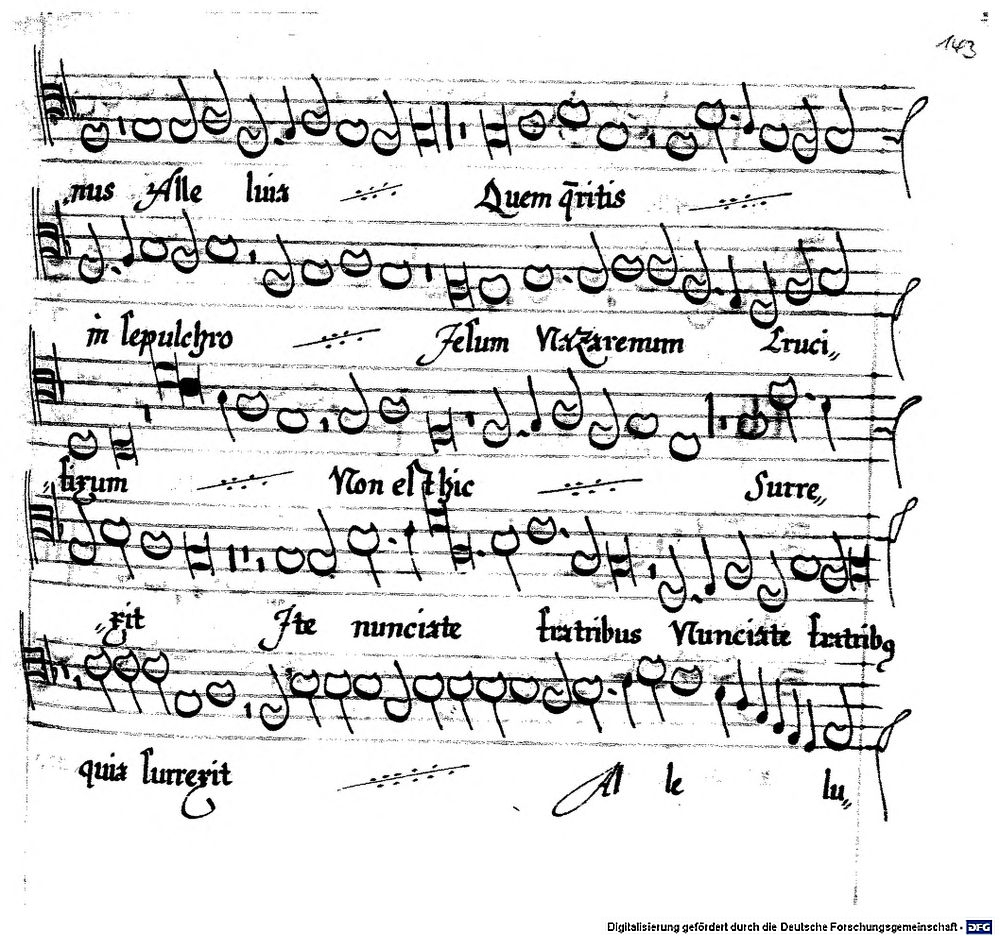 143
nus Alle luia Quem q̄ritis
in sepulchro Jesum Nazarenum Cruci„
„fixum Non est hic Surre„
„xit Ite nunciate fratribus Nunciate fratribꝯ
quia surrexit Al le lu„
Digitalisierung gefördert durch die Deutsche Forschungsgemeinschaft - DFG